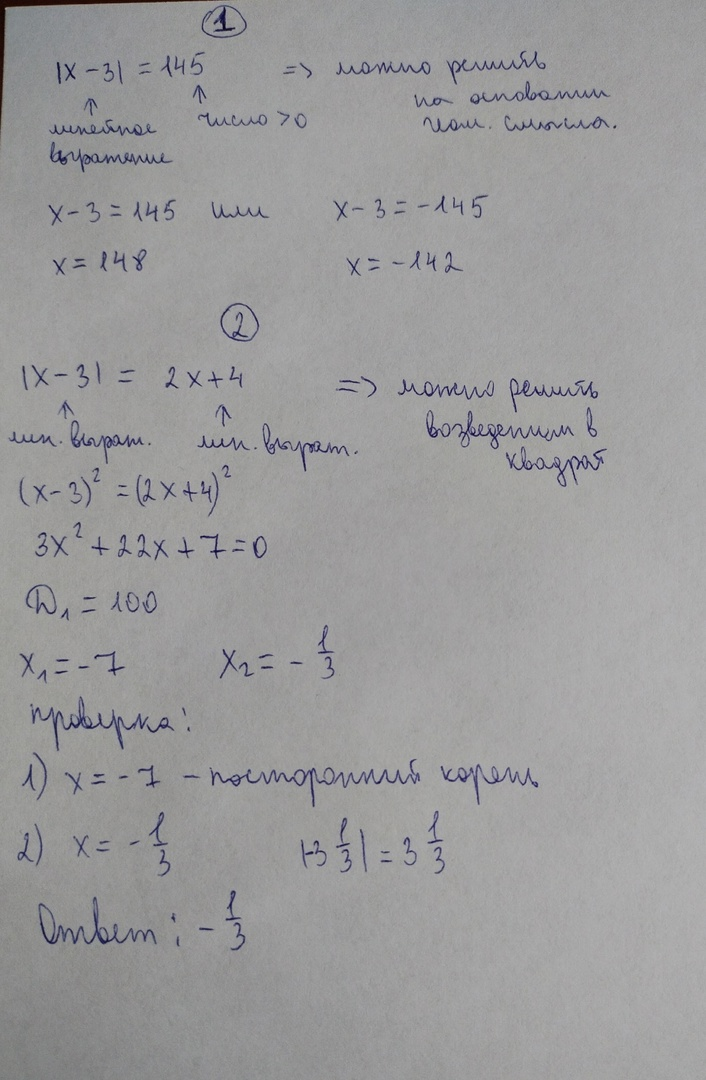 1
|x-3| = 145 => можно решить
на основании
линейное число >0 геом. смысла.
выражение
x-3=145 или x-3=-145
x=148 x=-142
2
|x-3| = 2x+4 => можно решить
лин. выраж. лин. выраж. возведением в
квадрат
(x-3)²=(2x+4)²
3x²+22x+7=0
D₁=100
x₁=-7 x₂=-1/3
Проверка:
1) x=-7 – посторонний корень
2) x=-1/3 |-3 1/3|=3 1/3
Ответ: -1/3